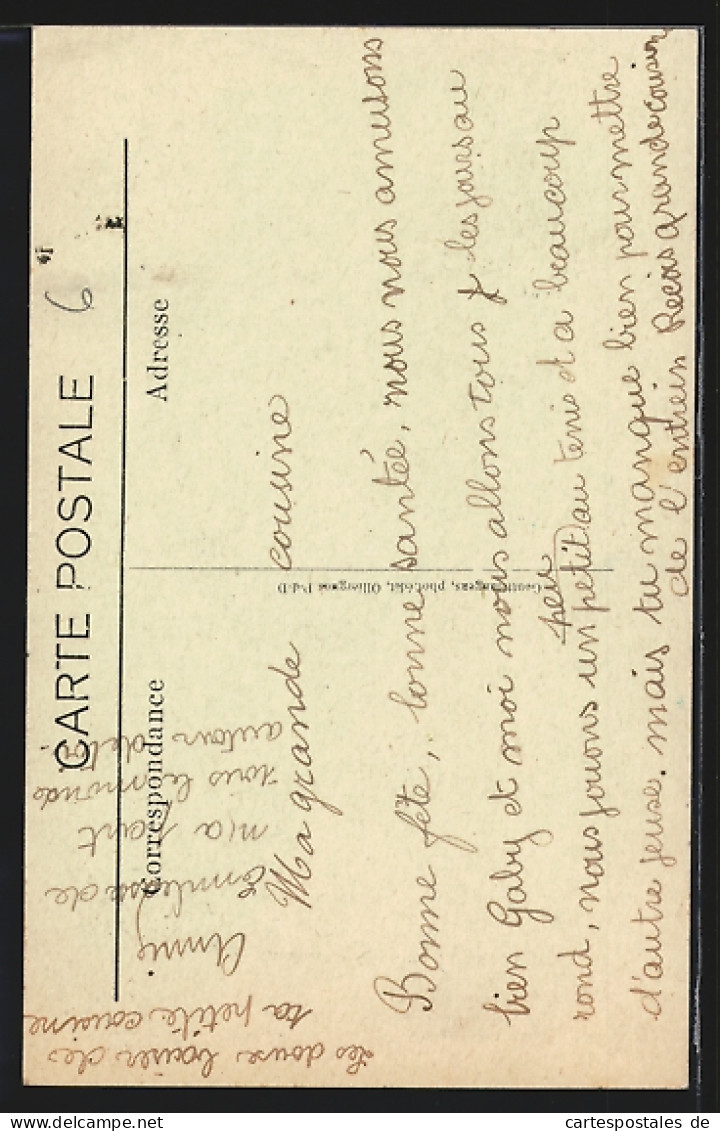 CARTE POSTALE
6
Correspondance
Adresse
Ma grande cousine
Bonne fête, bonne santée, nous nous amusons
bien Gaby et moi nous allons tous les jours au
rond, nous jouons un petit peu au tenis et a beaucoup
d'autre jeuse. mais tu manque bien pour mettre
de l'entrein Recois grande cousine
les douse baiser de
ta petite cousine
Annie
de
ma part
tous le monde
autour de
phot.édit, Olliergues P-d-D
cartespostales de delcampe.net